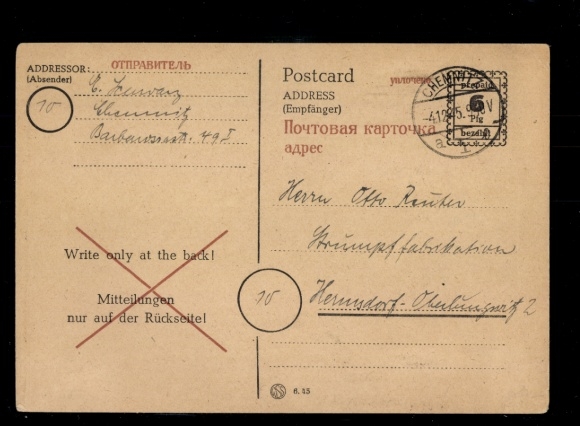 ADDRESSOR: ОТПРАВИТЕЛЬ
(Absender)
Chemnitz
Barbarossastr. 49 I
10
Postcard уплочено
ADDRESS
(Empfänger)
Почтовая карточка
адрес
CHEMNITZ
prepaid
6
Pfg
bezahlt
Herrn Otto Reuter
Strumpffabrikation
Hermsdorf-Oberlungwitz 2
Write only at the back!
Mitteilungen
nur auf der Rückseite!
10
6. 45